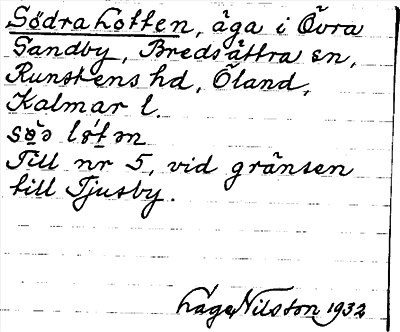 Södra Lotten, äga i Övra
Sandby, Bredsättra sn,
Runstens hd, Öland,
Kalmar l.
Till nr 5, vid gränsen
till Tjusby.
Nilsson 1932